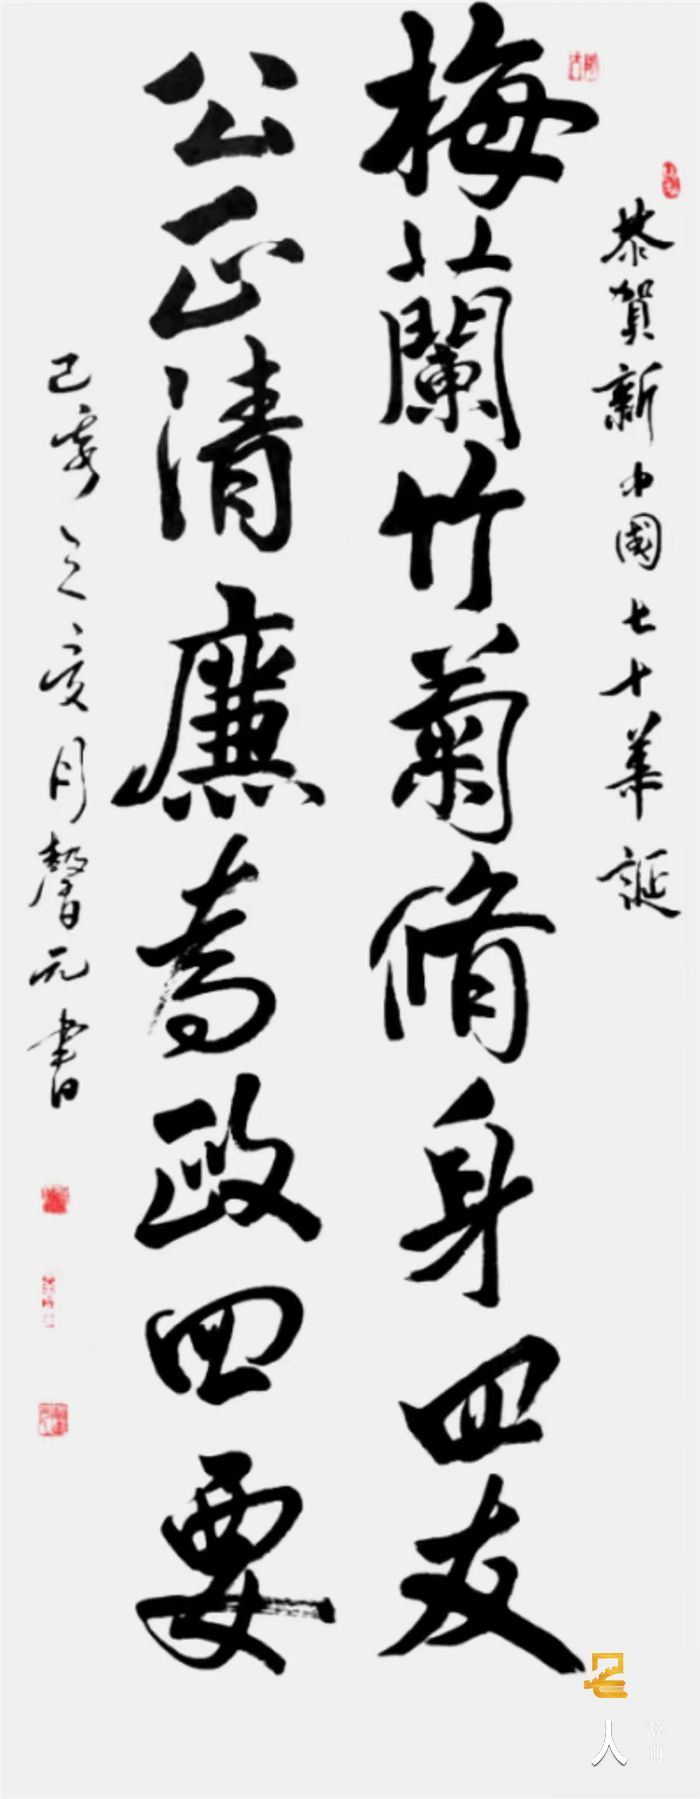 恭賀新中國七十華誕
梅蘭竹菊脩身四友
公正清廉為政四要
己亥之夏月馨元書
人
辞典